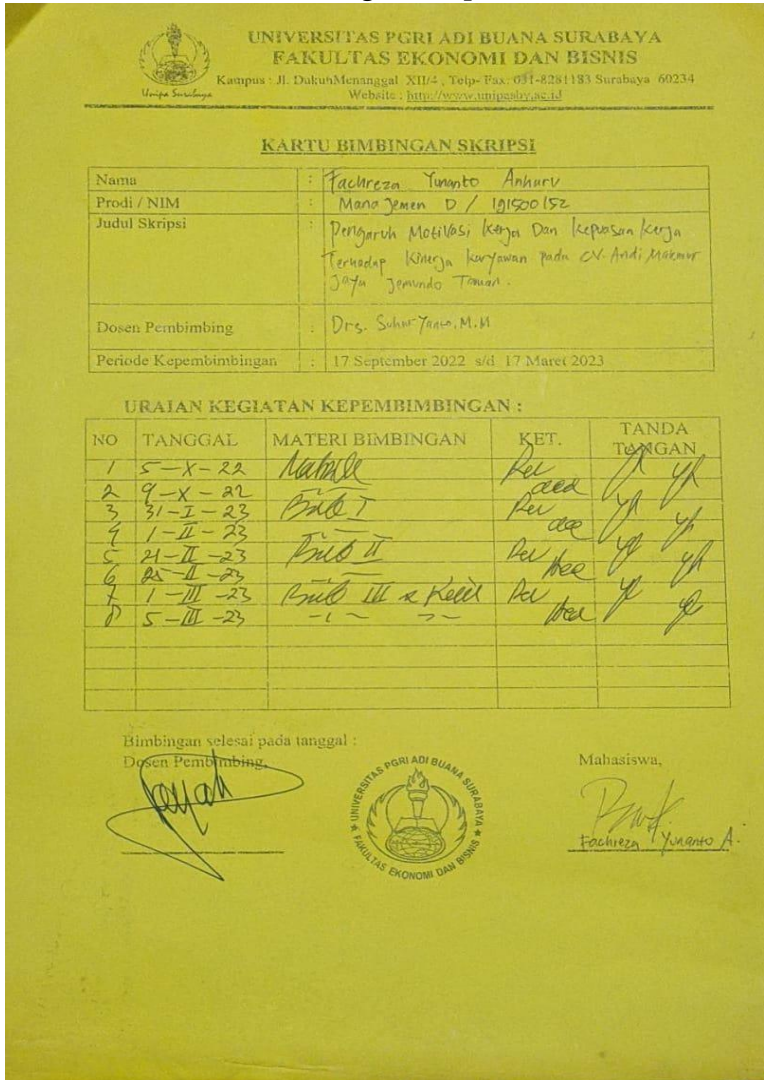 UNIVERSITAS PGRI ADI BUANA SURABAYA
FAKULTAS EKONOMI DAN BISNIS
Kampus : Jl. DukuhMenanggal XII/4 , Telp- Fax. 031-8281183 Surabaya 60234
Website : http://www.unipasby.ac.id
Unipa Surabaya
KARTU BIMBINGAN SKRIPSI
Nama : Fachreza Yunanto
Prodi / NIM : Manajemen D / 191500152
Judul Skripsi : Pengaruh Motivasi Kerja Dan Kepuasan Kerja
Terhadap Kinerja Karyawan pada CV. Andi Makmur
Jaya Jemundo Taman.
Dosen Pembimbing : Drs. Suharyanto, M.M
Periode Kepembimbingan : 17 September 2022 s/d 17 Maret 2023
URAIAN KEGIATAN KEPEMBIMBINGAN :
NO TANGGAL MATERI BIMBINGAN KET. TANDA TANGAN
1 5-X-22 Rev
2 9-X-22 acc
3 31-I-23 Bab I Rev
4 1-II-23 acc
5 21-II-23 Bab II Rev
6 25-II-23 acc
7 1-III-23 Bab III Rev
8 5-III-23 acc
Bimbingan selesai pada tanggal :
Dosen Pembimbing, Mahasiswa,
UNIVERSITAS PGRI ADI BUANA SURABAYA
FAKULTAS EKONOMI DAN BISNIS
Fachreza Yunanto A.